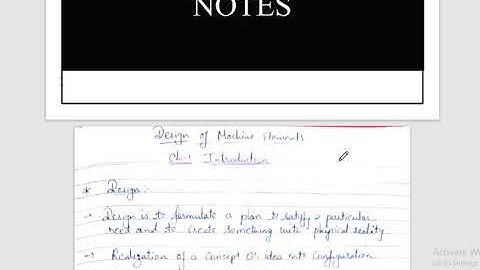 NOTES
Design of Machine Elements
Ch-1 Introduction
* Design:-
→ Design is to formulate a plan to satisfy a particular
need and to create something with physical reality.
→ Realization of a Concept or idea into Configuration
Activate W
Go to Settings